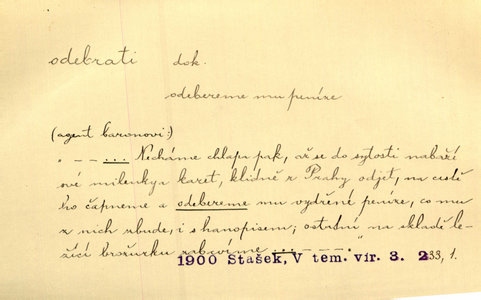 odebrati dok.
odebereme mu peníze
(agent baronovi:)
" – – ... Necháme chlapa pak, ať se do sytosti nabaží
své milenky a karet, klidně z Prahy odjet, na cestě
ho čapneme a odebereme mu vydřené peníze, co mu
z nich zbude, i s rukopisem; ostatní na skladě le-
žící brožurku zabavíme ... – – – – "
1900 Stašek, V tem. vír. 3. 233, 1.